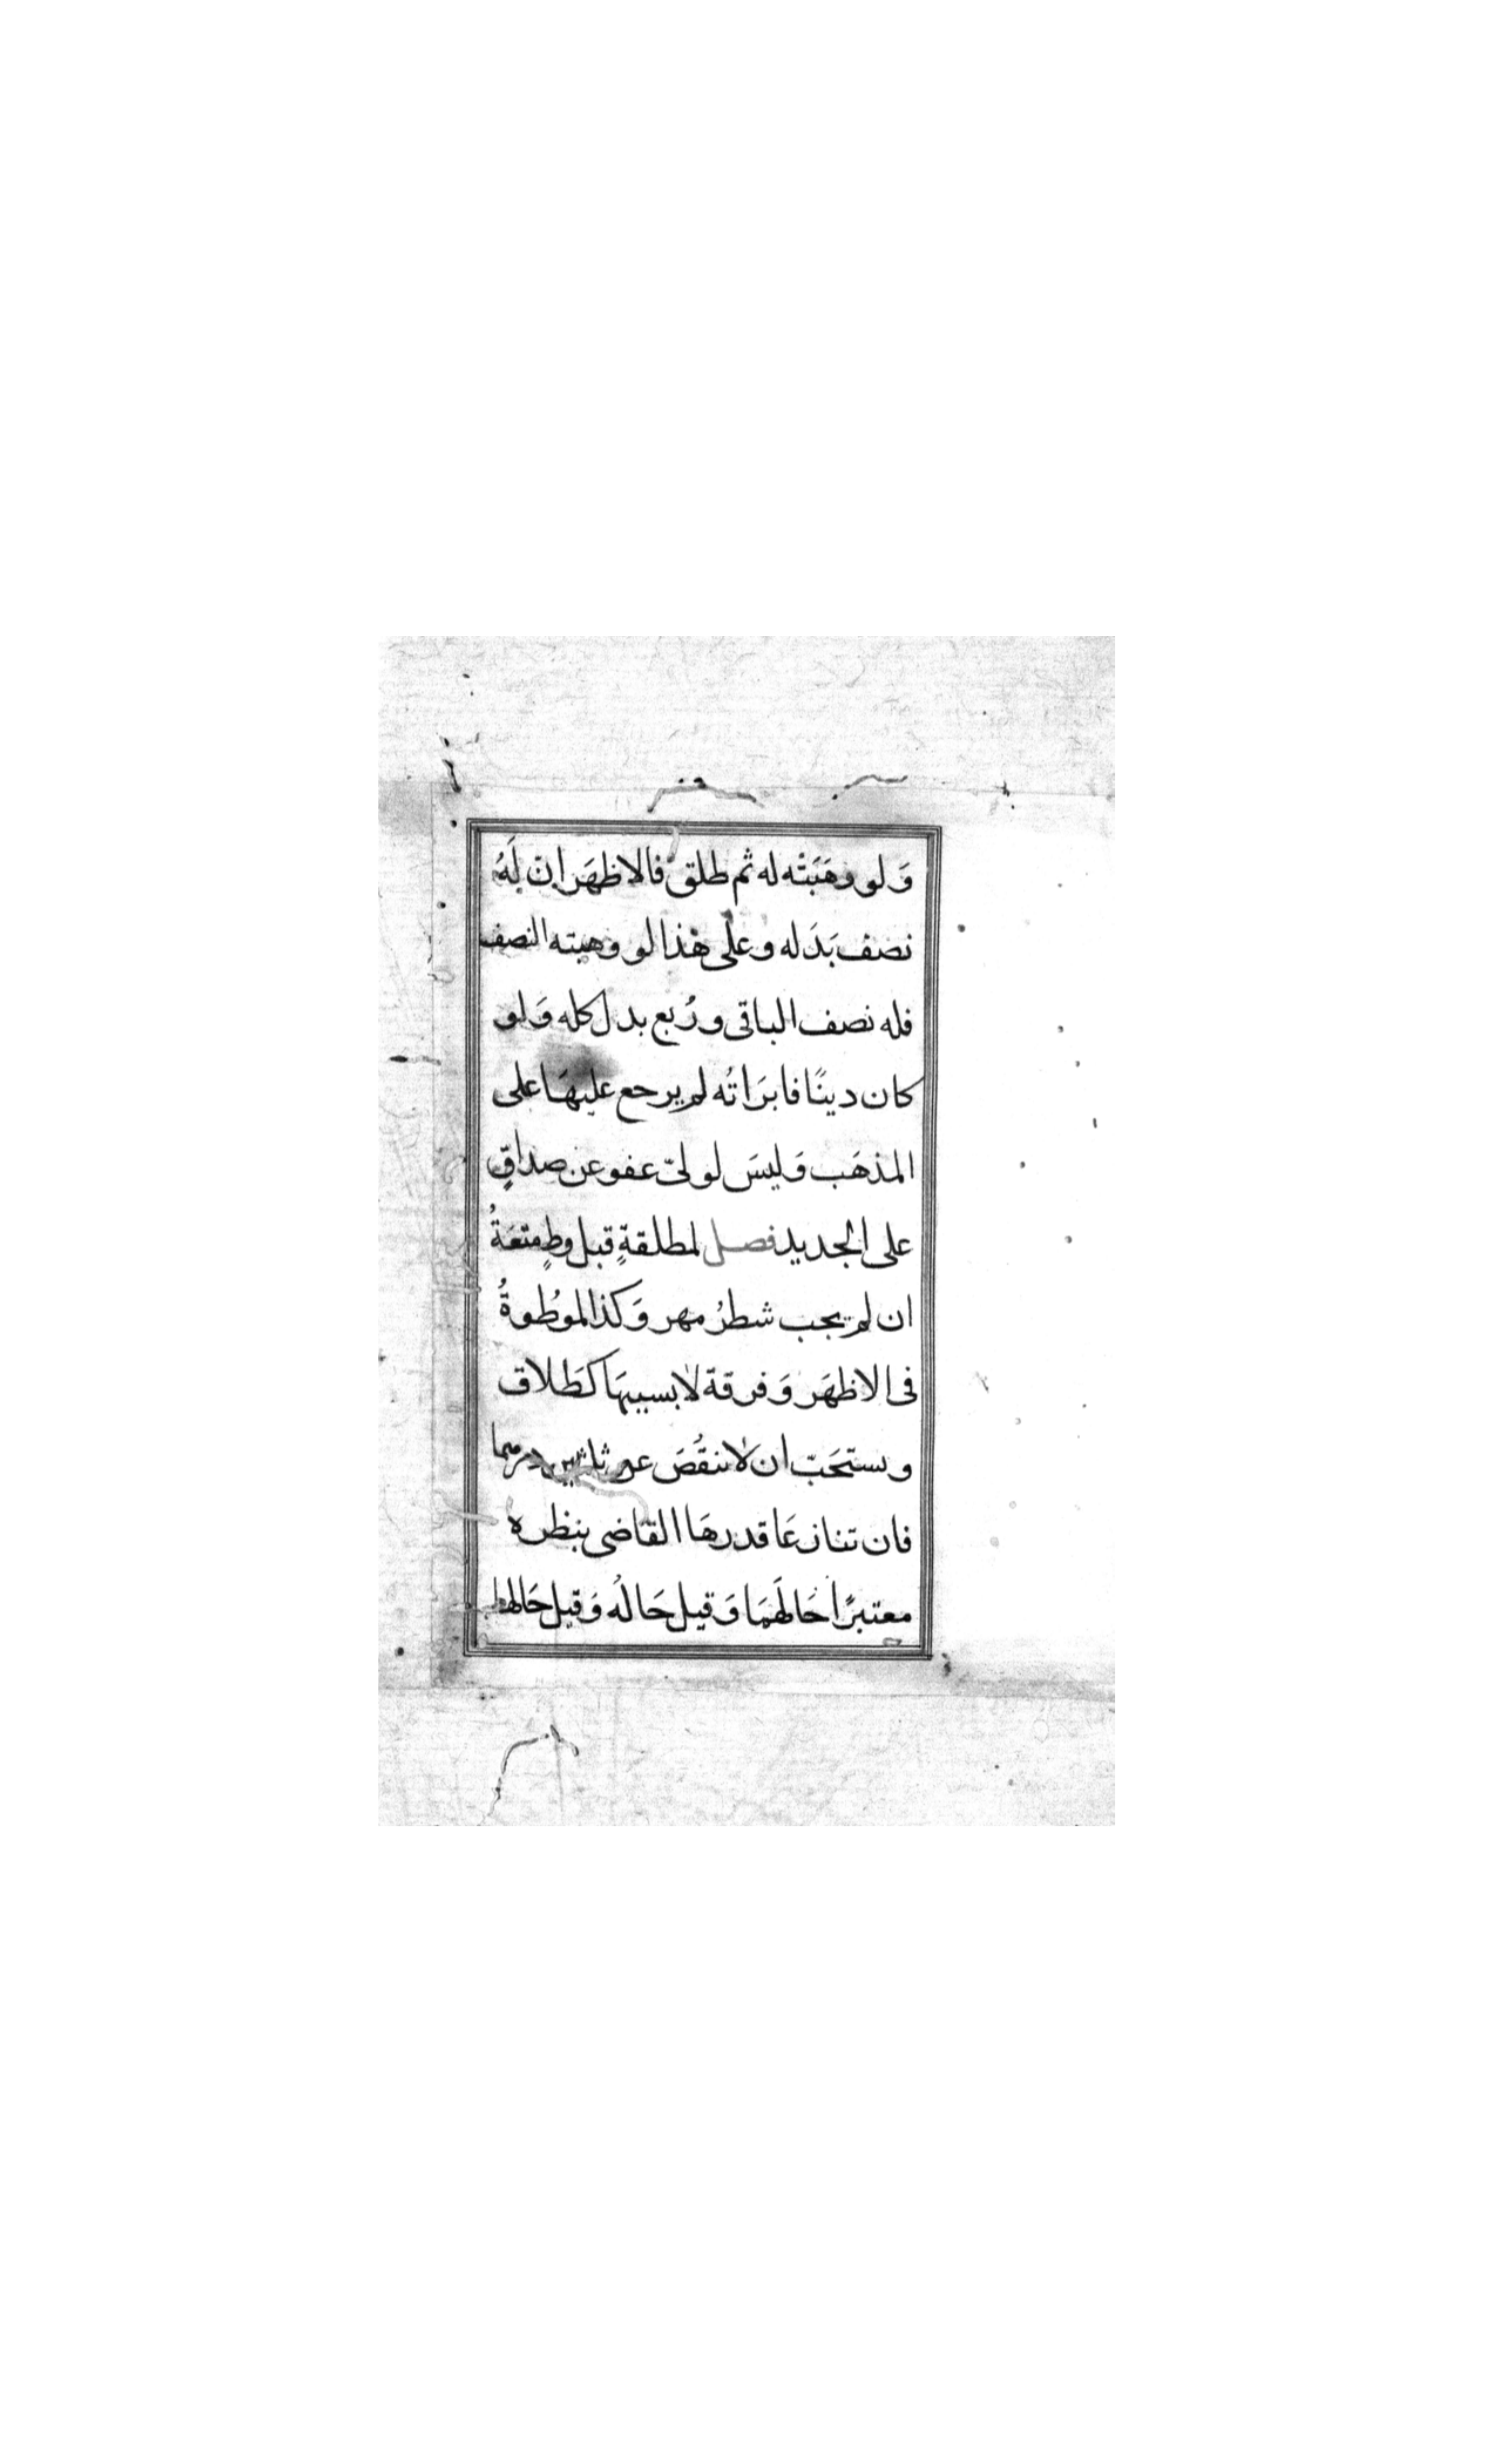 وَلو وهَبَتْه له ثم طلق فالاظهَر انّ لَهُ
نصف بَدَله وعلى هٰذا لو وهبته النصف
فله نصف الباقى ورُبع بدل كله وَلو
كان دينًا فابرَاتُه لم يرجع عليهَا على
المذهَب وَليسَ لولىّ عفو عن صداقٍ
على الجديد فصل لمطلقةٍ قبل وطٍ متعَةُ
ان لم يجب شطرُ مهر وَكذا لموطُوةُ
فى الاظهَر وَفرقة لا بسببهَا كطَلاق
ويستحَبّ ان لا ينقُصَ عن ثلثين درهما
فان تنازعَا قدرهَا القاضى بنظره
معتبرًا حَالهَمَا وَقيل حَالُه وَقيل حَالها